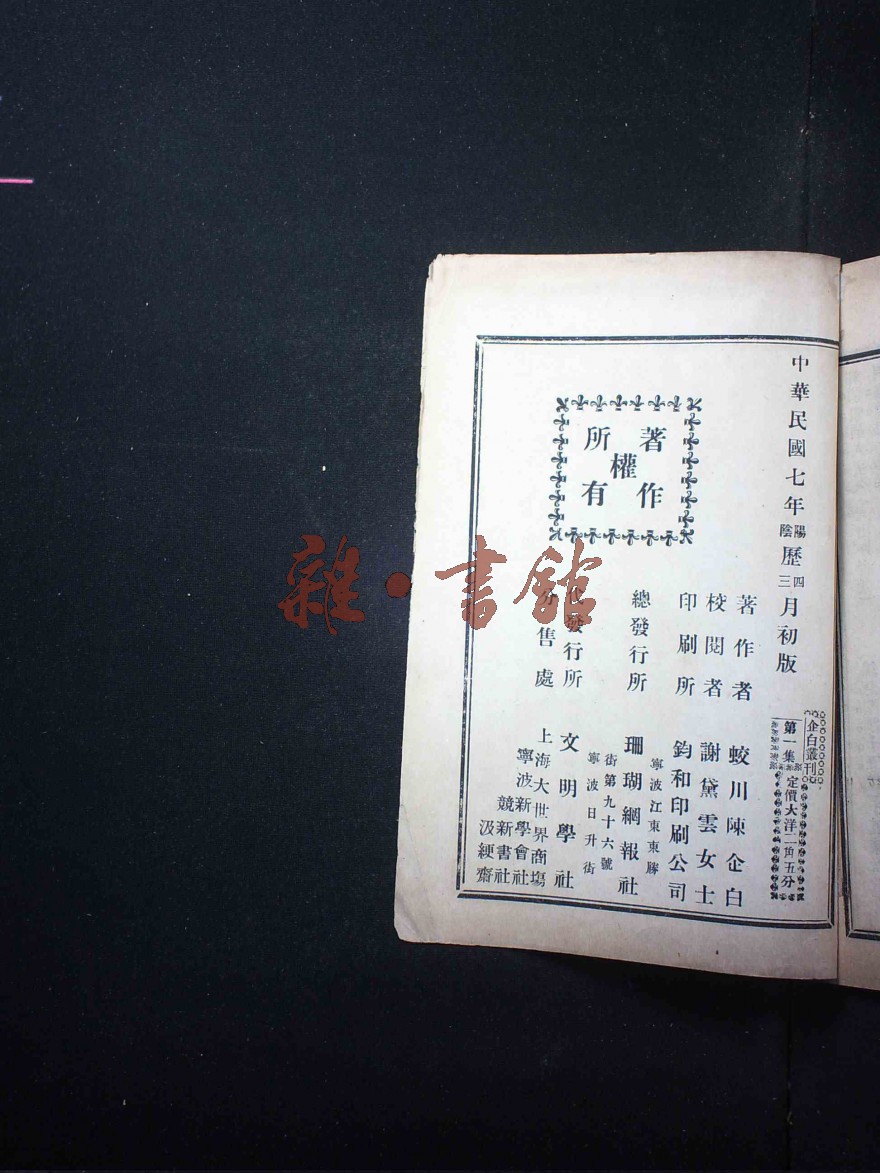 中華民國七年陽陰歷四三月初版
企白叢刊
第一集
定價大洋二角五分
著作權所有
著作者 蛟川陳企白
校閱者 謝黛雲女士
印刷所 鈞和印刷公司
寧波江東東勝
街第九十六號
總發行所 珊瑚網報社
寧波日升街
發行所 文明學社
分售處 上海大世界商場
寧波新學會社
競新書社
汲綆齋
雜·書館